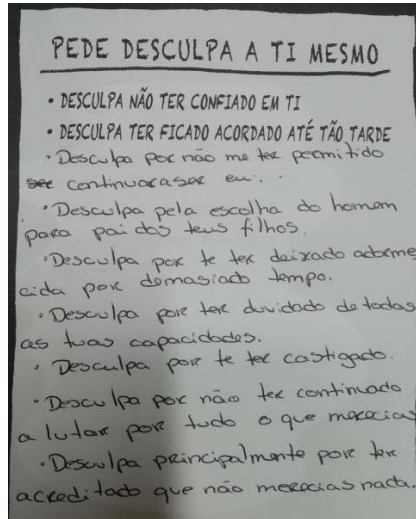 PEDE DESCULPA A TI MESMO
• DESCULPA NÃO TER CONFIADO EM TI
• DESCULPA TER FICADO ACORDADO ATÉ TÃO TARDE
• Desculpa por não me ter permitido
ser continuar a ser eu.
• Desculpa pela escolha do homem
para pai dos teus filhos.
• Desculpa por te ter deixado adorme
cida por demasiado tempo.
• Desculpa por ter duvidado de todas
as tuas capacidades.
• Desculpa por te ter castigado.
• Desculpa por não ter continuado
a lutar por tudo o que merecias
• Desculpa principalmente por ter
acreditado que não merecias nada.